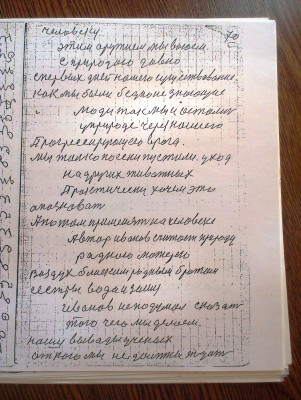 человеку 70
этим оружием мы воюем
с природаю давно
с первых дней нашего существования.
как мы были бедное не знающие
люди так мы и остались
у природе через нашего
Прогрессирующего врага.
мы только посеки пустили. уход
на других животных
Практически хочем это
опазноват
А потом применят на человеке
Автор иванов считает природу
радного матерею
воздух близким родным братом
сестры вода и землю
иванов не подумал сказат
того чего мы делаем.
нашу выводы ученых
от кого мы не должны ждат